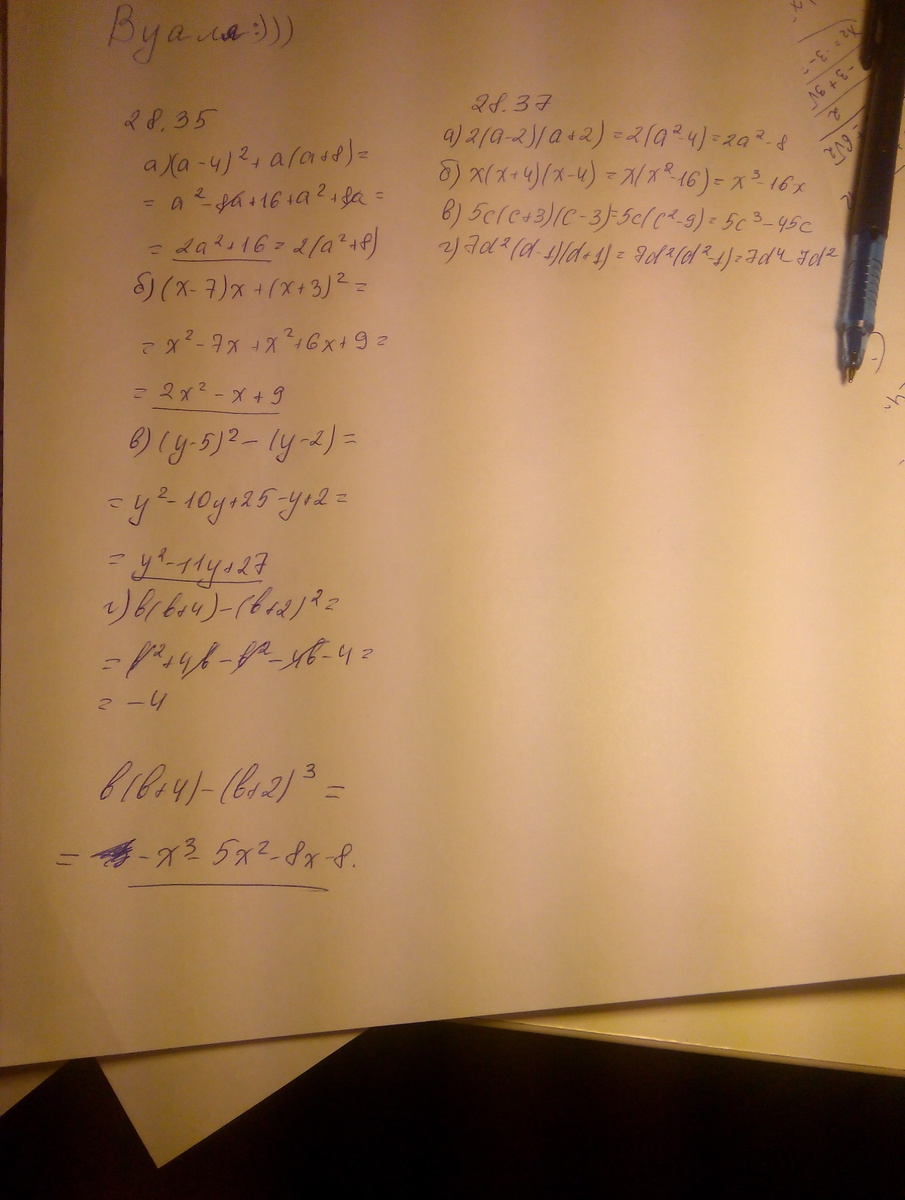 Вуаля:)))
28.35
а) (a-4)² + a(a+8) =
= a² - 8a + 16 + a² + 8a =
= 2a² + 16 = 2(a² + 8)
б) (x-7)x + (x+3)² =
= x² - 7x + x² + 6x + 9 =
= 2x² - x + 9
в) (y-5)² - (y-2) =
= y² - 10y + 25 - y + 2 =
= y² - 11y + 27
г) b(b+4) - (b+2)² =
= b² + 4b - b² - 4b - 4 =
= -4
b(b+4) - (b+2)³ =
= -x³ - 5x² - 8x - 8.
28.37
а) 2(a-2)(a+2) = 2(a²-4) = 2a² - 8
б) x(x+4)(x-4) = x(x²-16) = x³ - 16x
в) 5c(c+3)(c-3) = 5c(c²-9) = 5c³ - 45c
г) 7d²(d-1)(d+1) = 7d²(d²-1) = 7d⁴ - 7d²